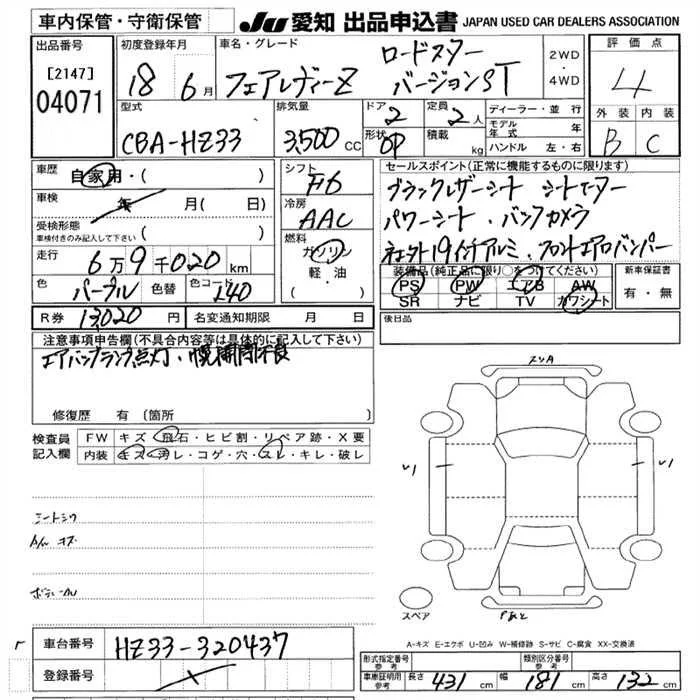 車内保管・守衛保管
JU 愛知 出品申込書 JAPAN USED CAR DEALERS ASSOCIATION
出品番号
[2147]
04071
初度登録年月
18 6月
車名・グレード
ロードスター
フェアレディーZ バージョンST
2WD
・
4WD
評価点
4
外装 内装
B C
型式
CBA-HZ33
排気量
3,500 CC
ドア
2
形状
OP
定員
2人
積載
kg
ディーラー・並行
モデル年式 年
ハンドル 左・右
車歴 自家用・( )
車検 年 月( 日)
受検形態
車検付きのみ記入して下さい ( )
走行 6万9千020km
色 パープル 色替 色コード L40
R券 13,020円 名変通知期限 月 日
シフト
F6
冷房
AAC
燃料
ガソリン
軽・油
( )
セールスポイント(正常に機能するものに限ります)
ブラックレザーシート シートヒーター
パワーシート・バックカメラ
19インチアルミ・フロントエアロバンパー
装備品(純正品に限り○をつけてください)
PS PW エアB AW
SR ナビ TV カワシート
新車保証書
有・無
後日品
注意事項申告欄(不具合内容等は具体的に記入して下さい)
エアバックランプ点灯・幌開閉不良
修復歴 有 (箇所
検査員記入欄
FW キズ・飛石・ヒビ割・リペア跡・X要
内装 キズ・汚レ・コゲ・穴・スレ・キレ・破レ
スリA
シートシワ
A/ル キズ
U1
U1
スペア
A-キズ E-エクボ U-凹み W-補修跡 S-サビ C-腐食 XX-交換済
車台番号 HZ33-320437
登録番号
形式指定番号 参考
類別区分番号 参考
車庫証明用 参考 長さ 431cm 幅 181cm 高さ 132cm